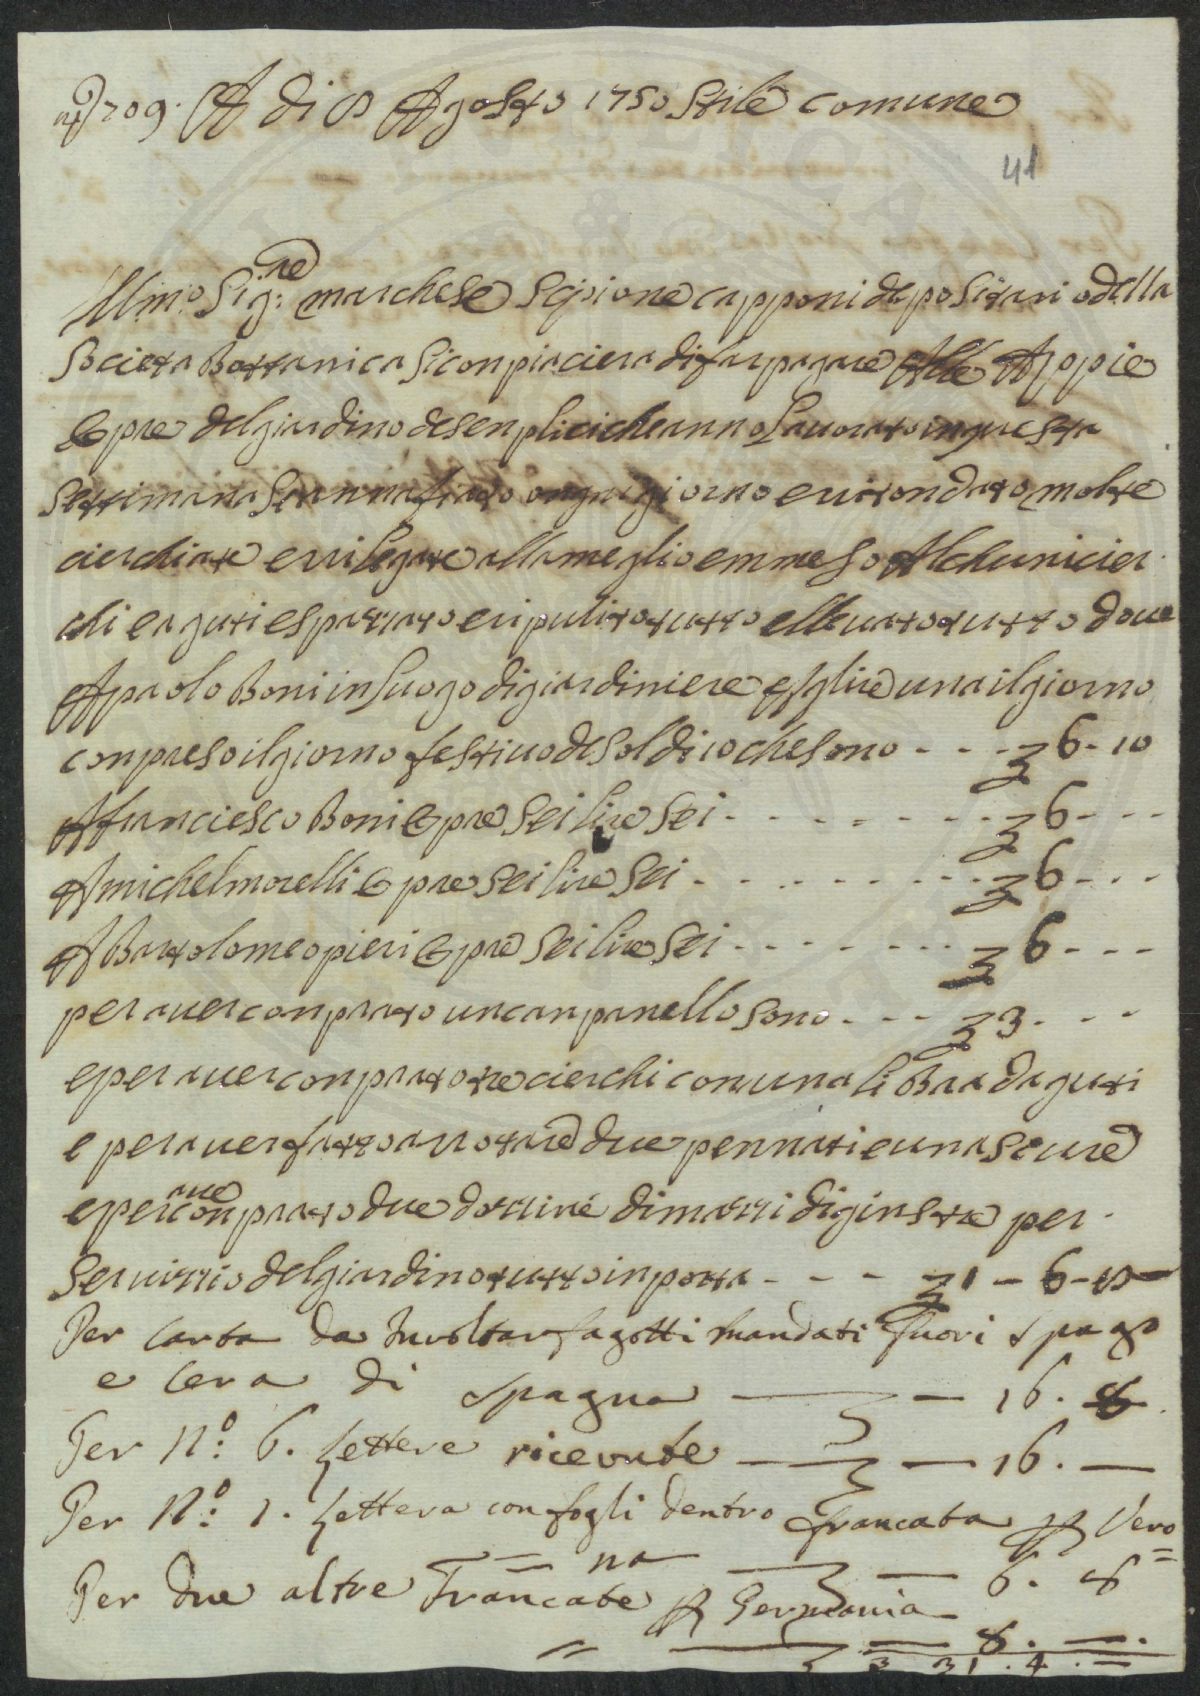 nº 709. A di 8 Agosto 1750 stile comune
41
Illmo Sigre: marchese Scipione capponi depositario della
Società Bottanica si conpiaciera di far pagare Alle Appie
Opre del giardino de senplici che anno Lavorato in questa
settimana s'è annafiato ongni giorno e ritondato molte
cierchiate e rilegate alla meglio e mmeso Alchuni cier
chi e aguti e spazzato e ripulito tutto e lleuato tutto doue
A paolo Boni in luogo di giardiniere e figlio una il giorno
conpreso il giorno festiuo de soldi 10 che sono - - - £ 6 - 10
A franciesco Boni Opre sei lire sei - - - - - - - - £ 6 - - -
A michel morelli Opre sei lire sei - - - - - - - - £ 6 - - -
A Bartolomeo pieri Opre sei lire sei - - - - - - - £ 6 - - -
per auer conprato un canpanello sono - - - £ 3 - - -
e per auer conprato tre cierchi con una liBra d aguti
e per auer fatto arrotare due pennati e una scure
e per aue conprato due dozzine di mazzi di ginestre per
seruizzio del giardino tutto inporta - - - £ 1 - 6 - 8
Per Carta da Involtar fagotti mandati fuori spago
e Cera di Spagna — £ — 16. 8.
Per N.º 6. Lettere ricevute — £ — 16. —
Per N.º 1. Lettera con fogli dentro francata p Vero=
=na — £ — 6. 8
Per due altre Francate p Germania
= — £ — 8. —.
£ 31. 4. —